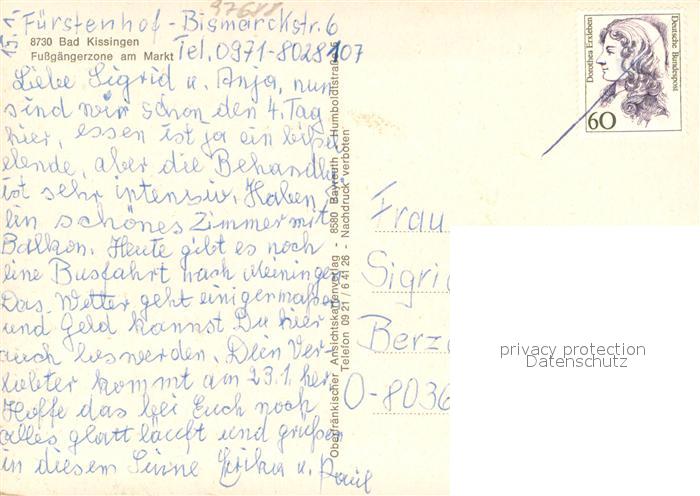 37688
Fürstenhof - Bismarckstr. 6
8730 Bad Kissingen
Fußgängerzone am Markt
Tel. 0971-8028107
Liebe Sigrid u. Anja, nun
sind wir schon den 4. Tag
hier, essen ist ja ein bißel
elende, aber die Behandlu
ist sehr intensiv. Haben
ein schönes Zimmer mit
Balkon. Heute gibt es noch
eine Busfahrt nach Meiningen
Das Wetter geht einigermaßen
und Geld kannst Du hier
auch loswerden. Dein Ver-
käufer kommt am 23.1. her
Hoffe das bei Euch noch
alles glatt läuft und grüßen
in diesem Sinne Erika u. Paul
Oberfränkischer Ansichtskartenverlag - 8580 Bayreuth - Humboldtstraße
Telefon 09 21 / 6 41 26 - Nachdruck verboten
Dorothea Erxleben
Deutsche Bundespost
60
Frau
Sigri
Berz
O-8036
privacy protection
Datenschutz